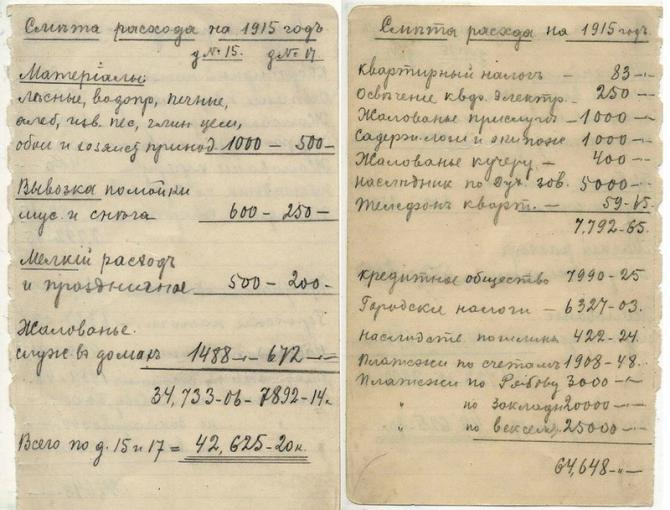 Смѣта расхода на 1915 годъ
д№ 15. д№ 17
Матеріалы
лѣсные, водопр, печные,
алеб, изв. пес, глин цем,
обои и хозяйст принад. 1000 — 500 —
Вывозка помойки
мус. и снѣга 600 — 250 —
Мелкій расходъ
и праздничное 500 — 200 —
Жалованье
служ. въ домахъ 1488 — " — 672 — " —
34,733 - 06 - 7892 - 14 к
Всего по д. 15 и 17 = 42,625 - 20 к.
Смѣта расхода на 1915 годъ
квартирный налогъ — 83 — "
Освѣщеніе электр. — 250 — "
Жалованье прислуга — 1000 — "
Содерж. лошади и экипажа 1000 — "
Жалованье кучеру — 400 — "
наслѣдник по дух. зав. 5000 — "
Телефонъ кварт. — 59 - 65
7,792 - 65.
кредитное общество 7990 - 25
Городскіе налоги — 6327 - 03.
наслѣдств пошлина 422 - 24.
Платежи по счетамъ 1908 - 48.
Платежи по Рябову 3000 — "
" по закладн 20000 — "
" по вексел. 25000 — "
64,648 — " —